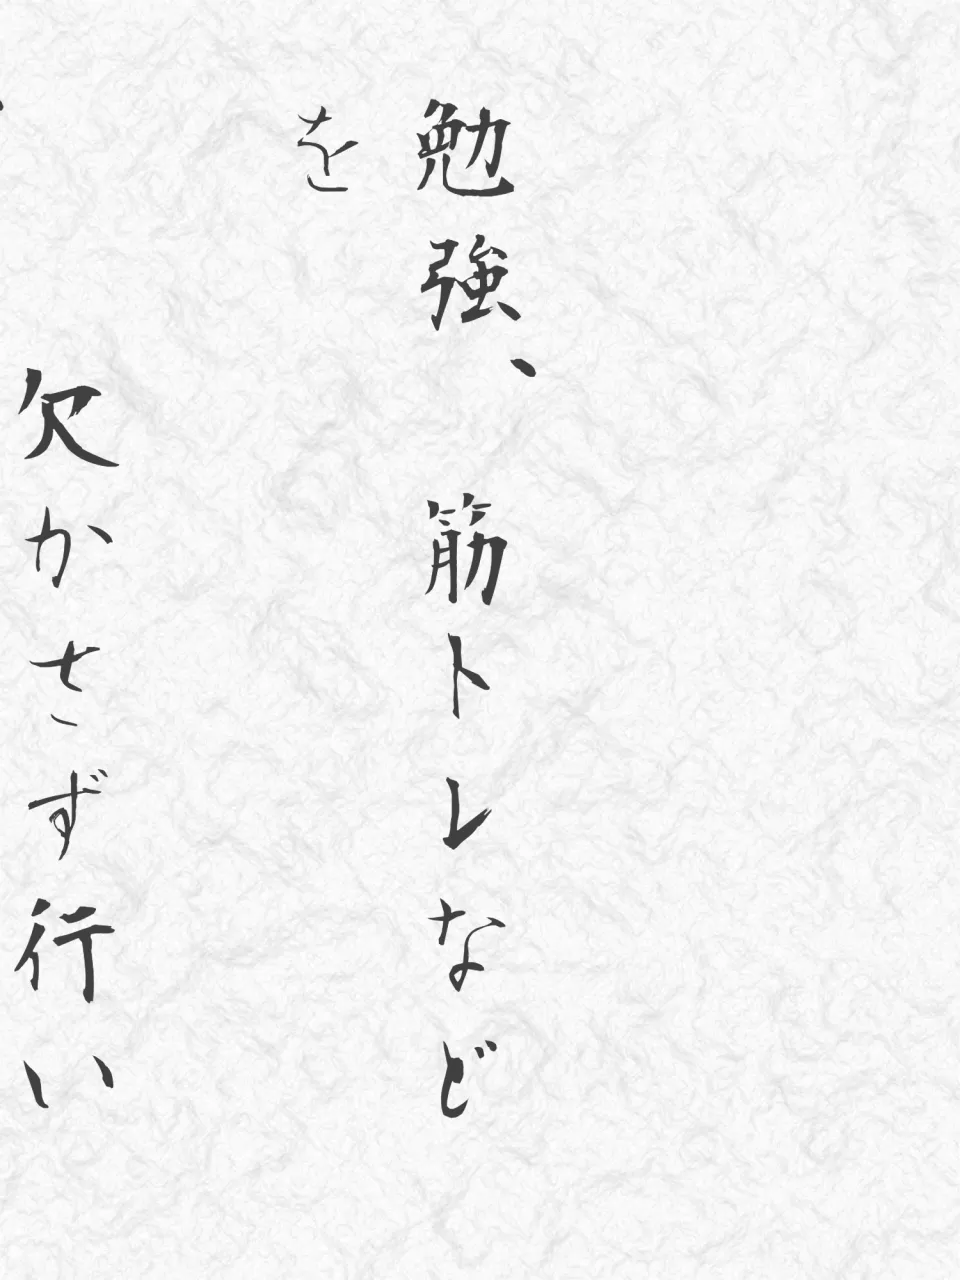 勉強、筋トレなど
を
欠かさず行い